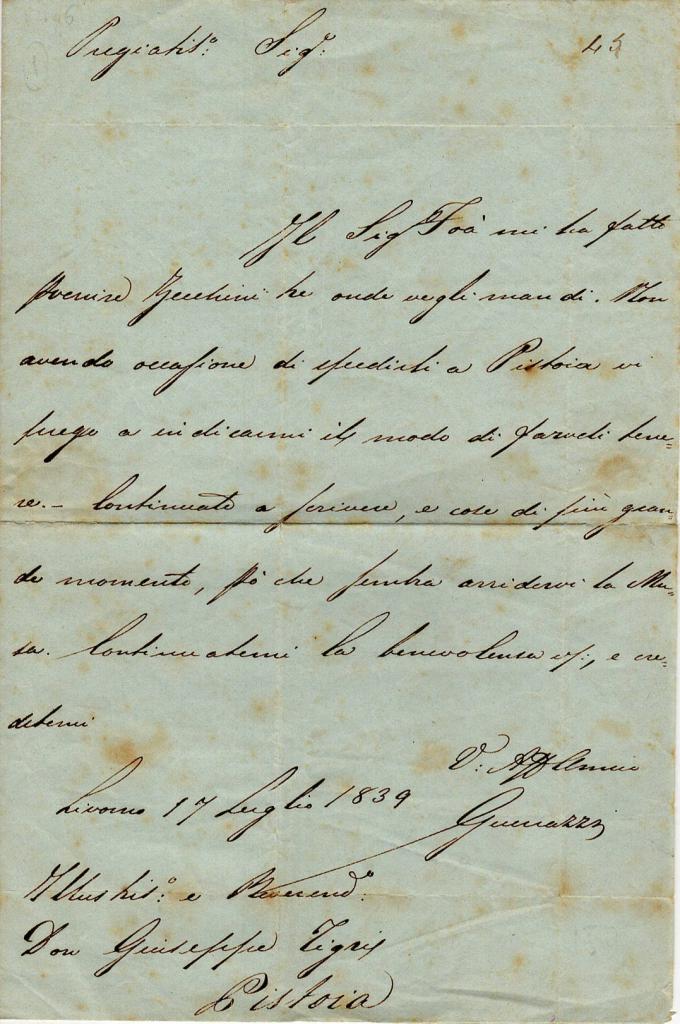 Pregiatis.º Sig.r 45
Il Sig Foà mi ha fatto
pvenire Zecchini tre onde ve gli mandi. Non
avendo occasione di spedirli a Pistoia vi
prego a indicarmi il modo di farveli tene=
re. - Continuate a scrivere, e cose di più gran=
de momento, pò che sembra arridervi la Mu=
sa. Continuatemi la benevolenza vs:, e cre=
detemi
V: Aff Amico
Livorno 17 Luglio 1839 Guerrazzi
Illustris.º e Reverend.º
Don Giuseppe Tigri
Pistoia